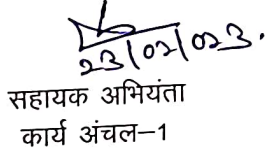 23/02/023.
सहायक अभियंता
कार्य अंचल–1